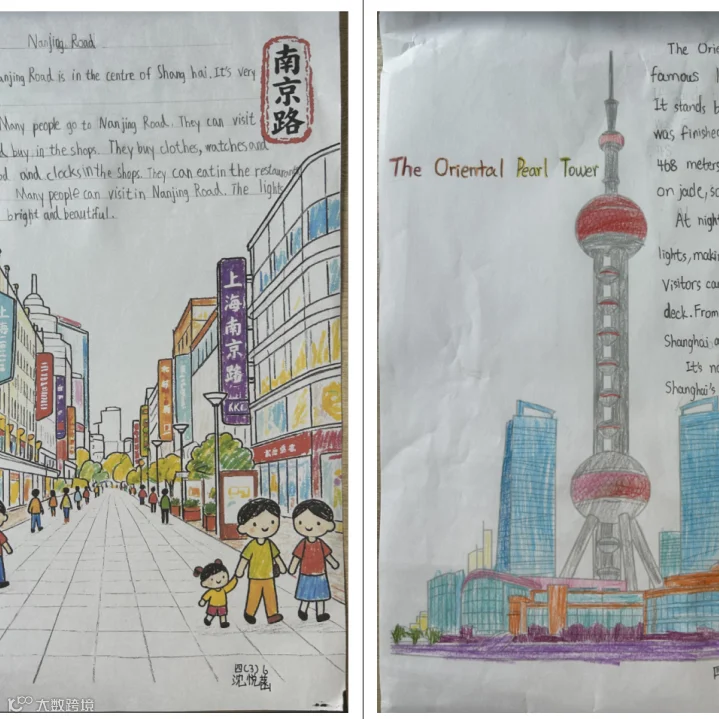 Nanjing Road
anjing Road is in the centre of Shang hai. It's very
Many people go to Nanjing Road. They can visit
d buy in the shops. They buy clothes, watches and
od and clocks in the shops. They can eat in the restaurants
Many people can visit in Nanjing Road. The lights
bright and beautiful.
南京路
上海南京路
四(3) 6
The Oriental Pearl Tower
The Orie
famous
It stands b
was finished
468 meters
on jade, so
At night
lights, makin
Visitors ca
deck. From
Shanghai a
It's no
Shanghai's
大数跨境